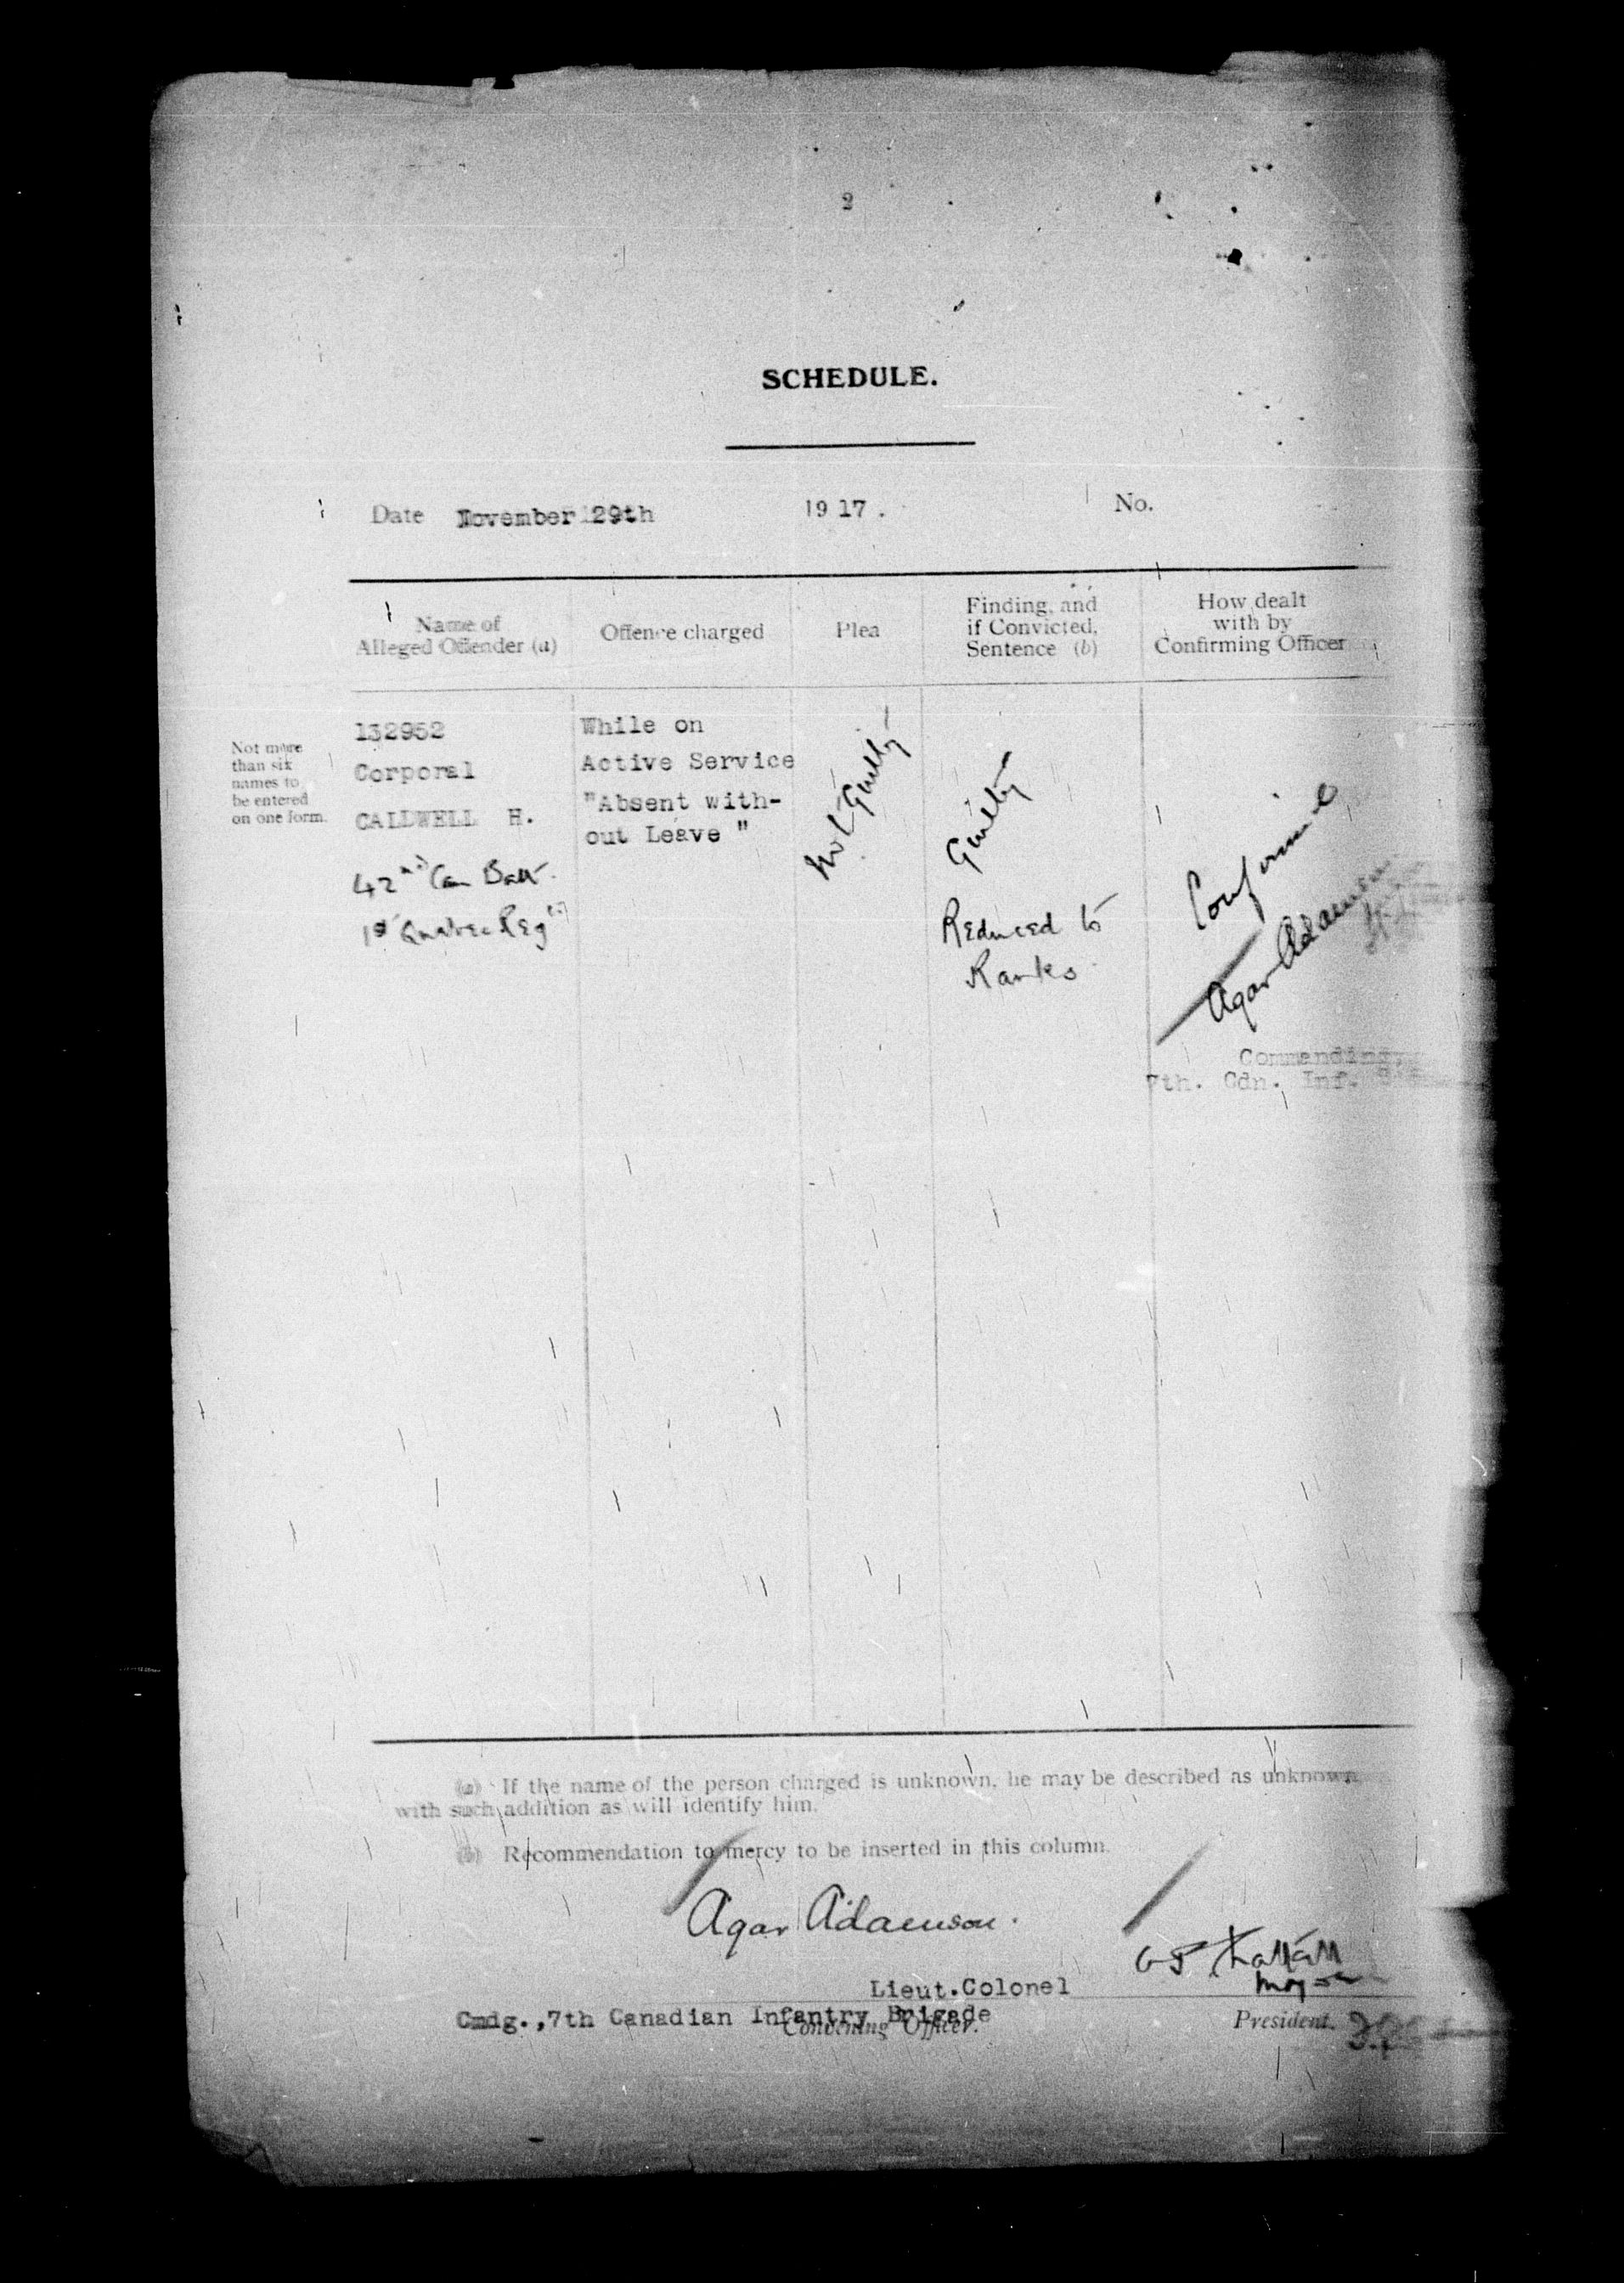 2
SCHEDULE.
Date November 29th 1917. No.
Name of
Alleged Offender (a)
Offence charged
Plea
Finding, and
if Convicted,
Sentence (b)
How dealt
with by
Confirming Officer
Not more
than six
names to
be entered
on one form.
132952
Corporal
CALDWELL H.
42nd Can Batt.
1st Quebec Regt
While on
Active Service
"Absent with-
out Leave "
Not Guilty
Guilty
Reduced to
Ranks
Confirmed
Agar Adamson
Commanding,
7th. Cdn. Inf.
(a) If the name of the person charged is unknown, he may be described as unknown,
with such addition as will identify him.
(b) Recommendation to mercy to be inserted in this column.
Agar Adamson.
Major
Lieut.Colonel
Cmdg.,7th Canadian Infantry Brigade
Convening Officer.
President.